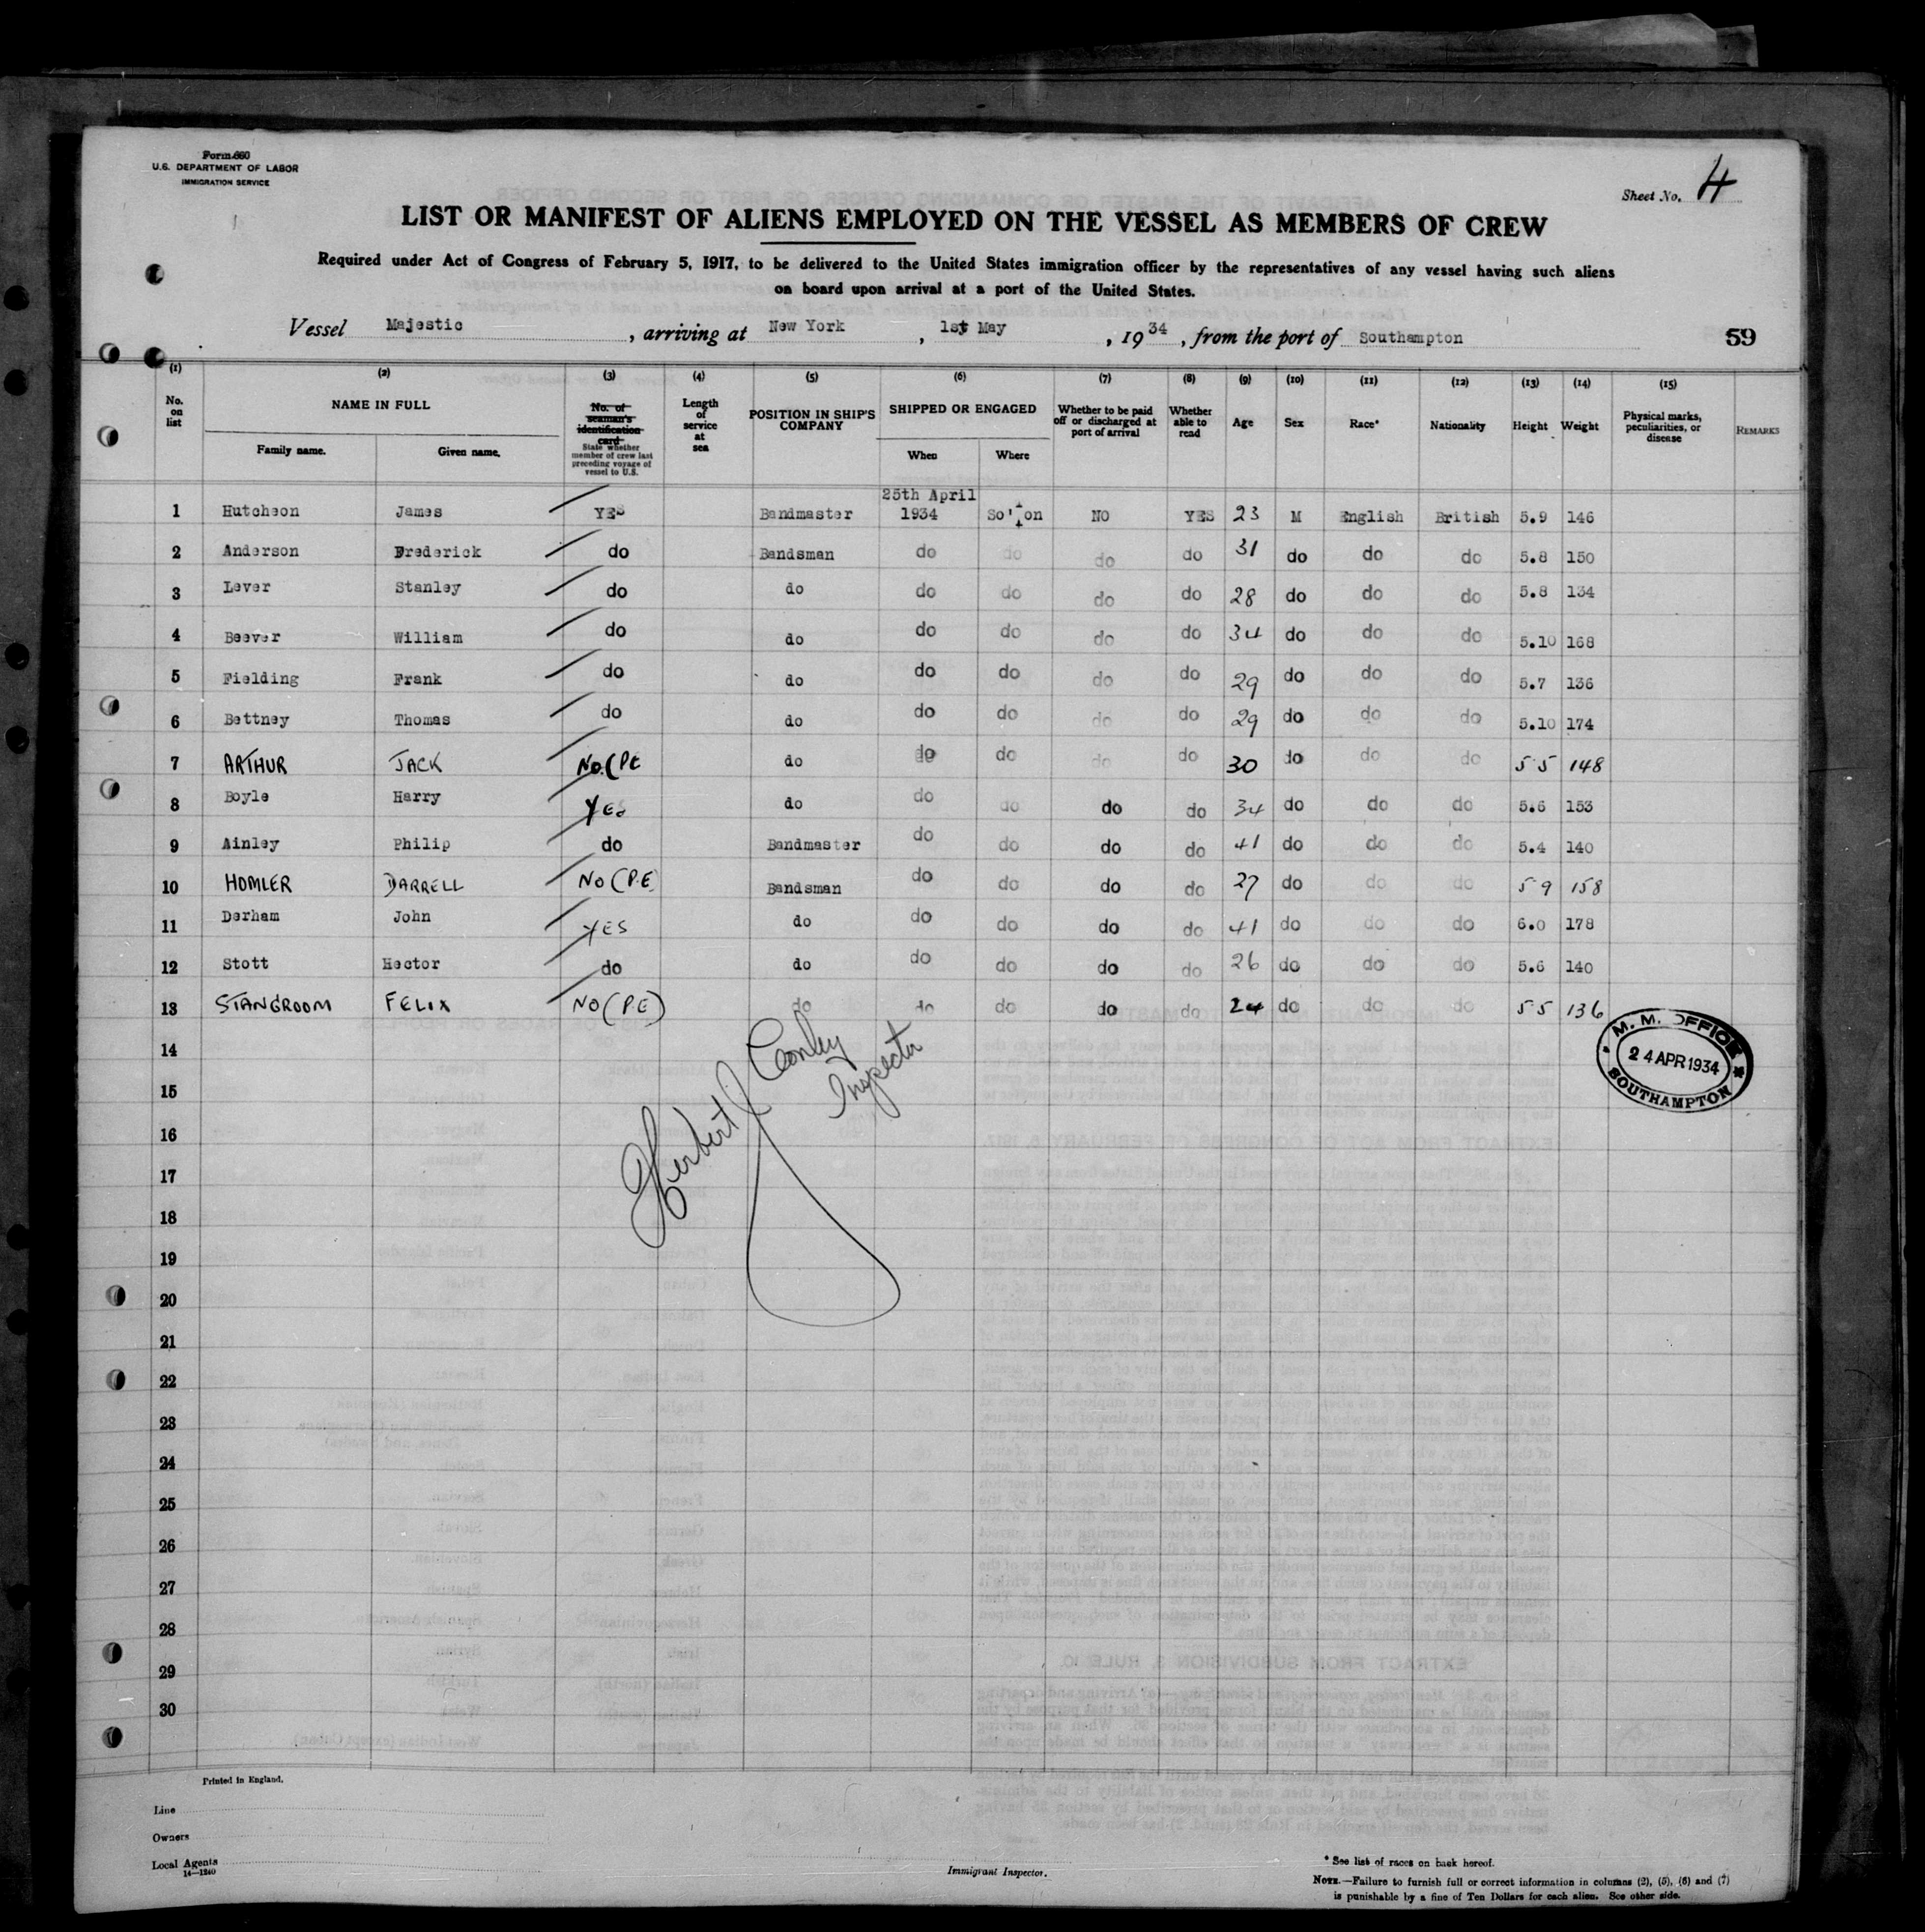 Form 660
U.S. DEPARTMENT OF LABOR
IMMIGRATION SERVICE
Sheet No. 4
LIST OR MANIFEST OF ALIENS EMPLOYED ON THE VESSEL AS MEMBERS OF CREW
Required under Act of Congress of February 5, 1917, to be delivered to the United States immigration officer by the representatives of any vessel having such aliens
on board upon arrival at a port of the United States.
Vessel Majestic, arriving at New York, 1st May, 1934, from the port of Southampton
59
(1) (2) (3) (4) (5) (6) (7) (8) (9) (10) (11) (12) (13) (14) (15)
No. on list NAME IN FULL Family name. Given name. No. of seaman's identification card State whether member of crew last preceding voyage of vessel to U.S. Length of service at sea POSITION IN SHIP'S COMPANY SHIPPED OR ENGAGED When Where Whether to be paid off or discharged at port of arrival Whether able to read Age Sex Race* Nationality Height Weight Physical marks, peculiarities, or disease REMARKS
25th April
1 Hutcheon James YES Bandmaster 1934 So'ton NO YES 23 M English British 5.9 146
2 Anderson Frederick do Bandsman do do do do 31 do do do 5.8 150
3 Lever Stanley do do do do do do 28 do do do 5.8 134
4 Beever William do do do do do do 34 do do do 5.10 168
5 Fielding Frank do do do do do do 29 do do do 5.7 136
6 Bettney Thomas do do do do do do 29 do do do 5.10 174
7 ARTHUR JACK NO.(PE do do do do do 30 do do do 5 5 148
8 Boyle Harry YES do do do do do 34 do do do 5.6 153
9 Ainley Philip do Bandmaster do do do do 41 do do do 5.4 140
10 HOMLER DARRELL NO (P.E) Bandsman do do do do 27 do do do 5 9 158
11 Derham John YES do do do do do 41 do do do 6.0 178
12 Stott Hector do do do do do do 26 do do do 5.6 140
13 STANGROOM FELIX NO (P.E) do do do do do 24 do do do 5 5 136
14
15
16
17
18
19
20
21
22
23
24
25
26
27
28
29
30
Herbert J Conley
Inspector
M. M. OFFICE
24 APR 1934
SOUTHAMPTON
Printed in England.
Line
Owners
Local Agents
14—1240
Immigrant Inspector.
* See list of races on back hereof.
NOTE.—Failure to furnish full or correct information in columns (2), (5), (6) and (7)
is punishable by a fine of Ten Dollars for each alien. See other side.